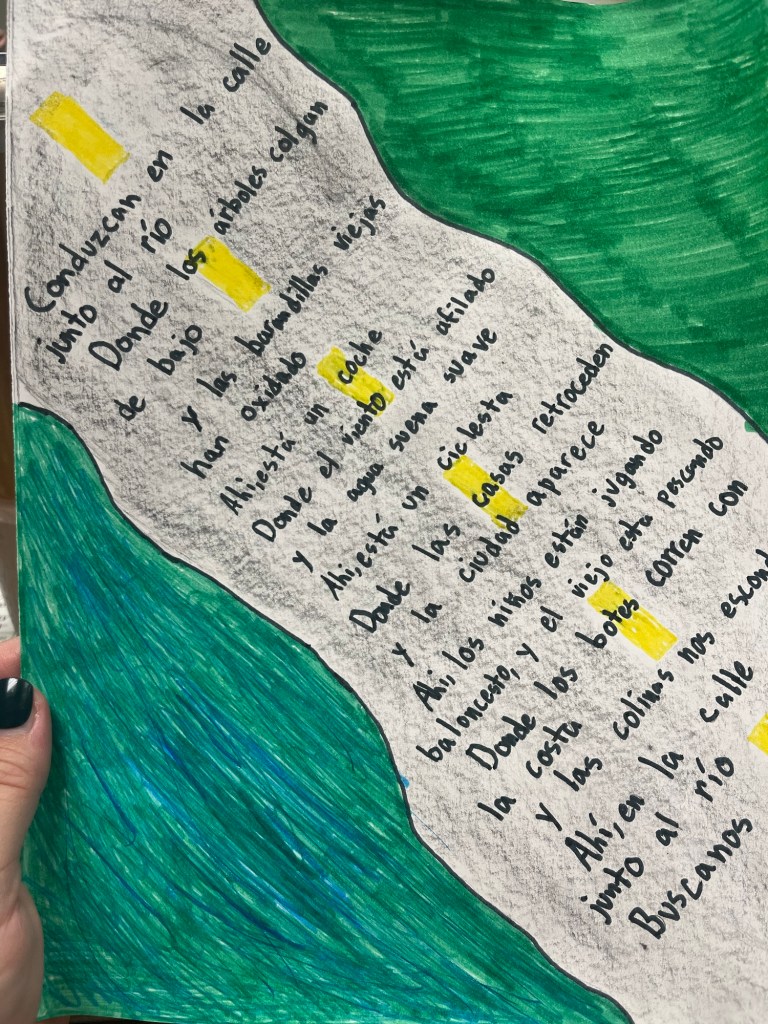 Conduzcan en la calle
junto al río
Donde los árboles colgan
de bajo
y las barandillas viejas
han oxidado
Ahí, está un coche
Donde el viento está afilado
y la agua suena suave
Ahí, está un ciclesta
Donde las casas retroceden
y la ciudad aparece
Ahí, los niños están jugando
baloncesto, y el viejo está pescando
Donde los botes corren con
la costa
y las colinas nos escond
Ahí, en la calle
junto al río
Buscanos